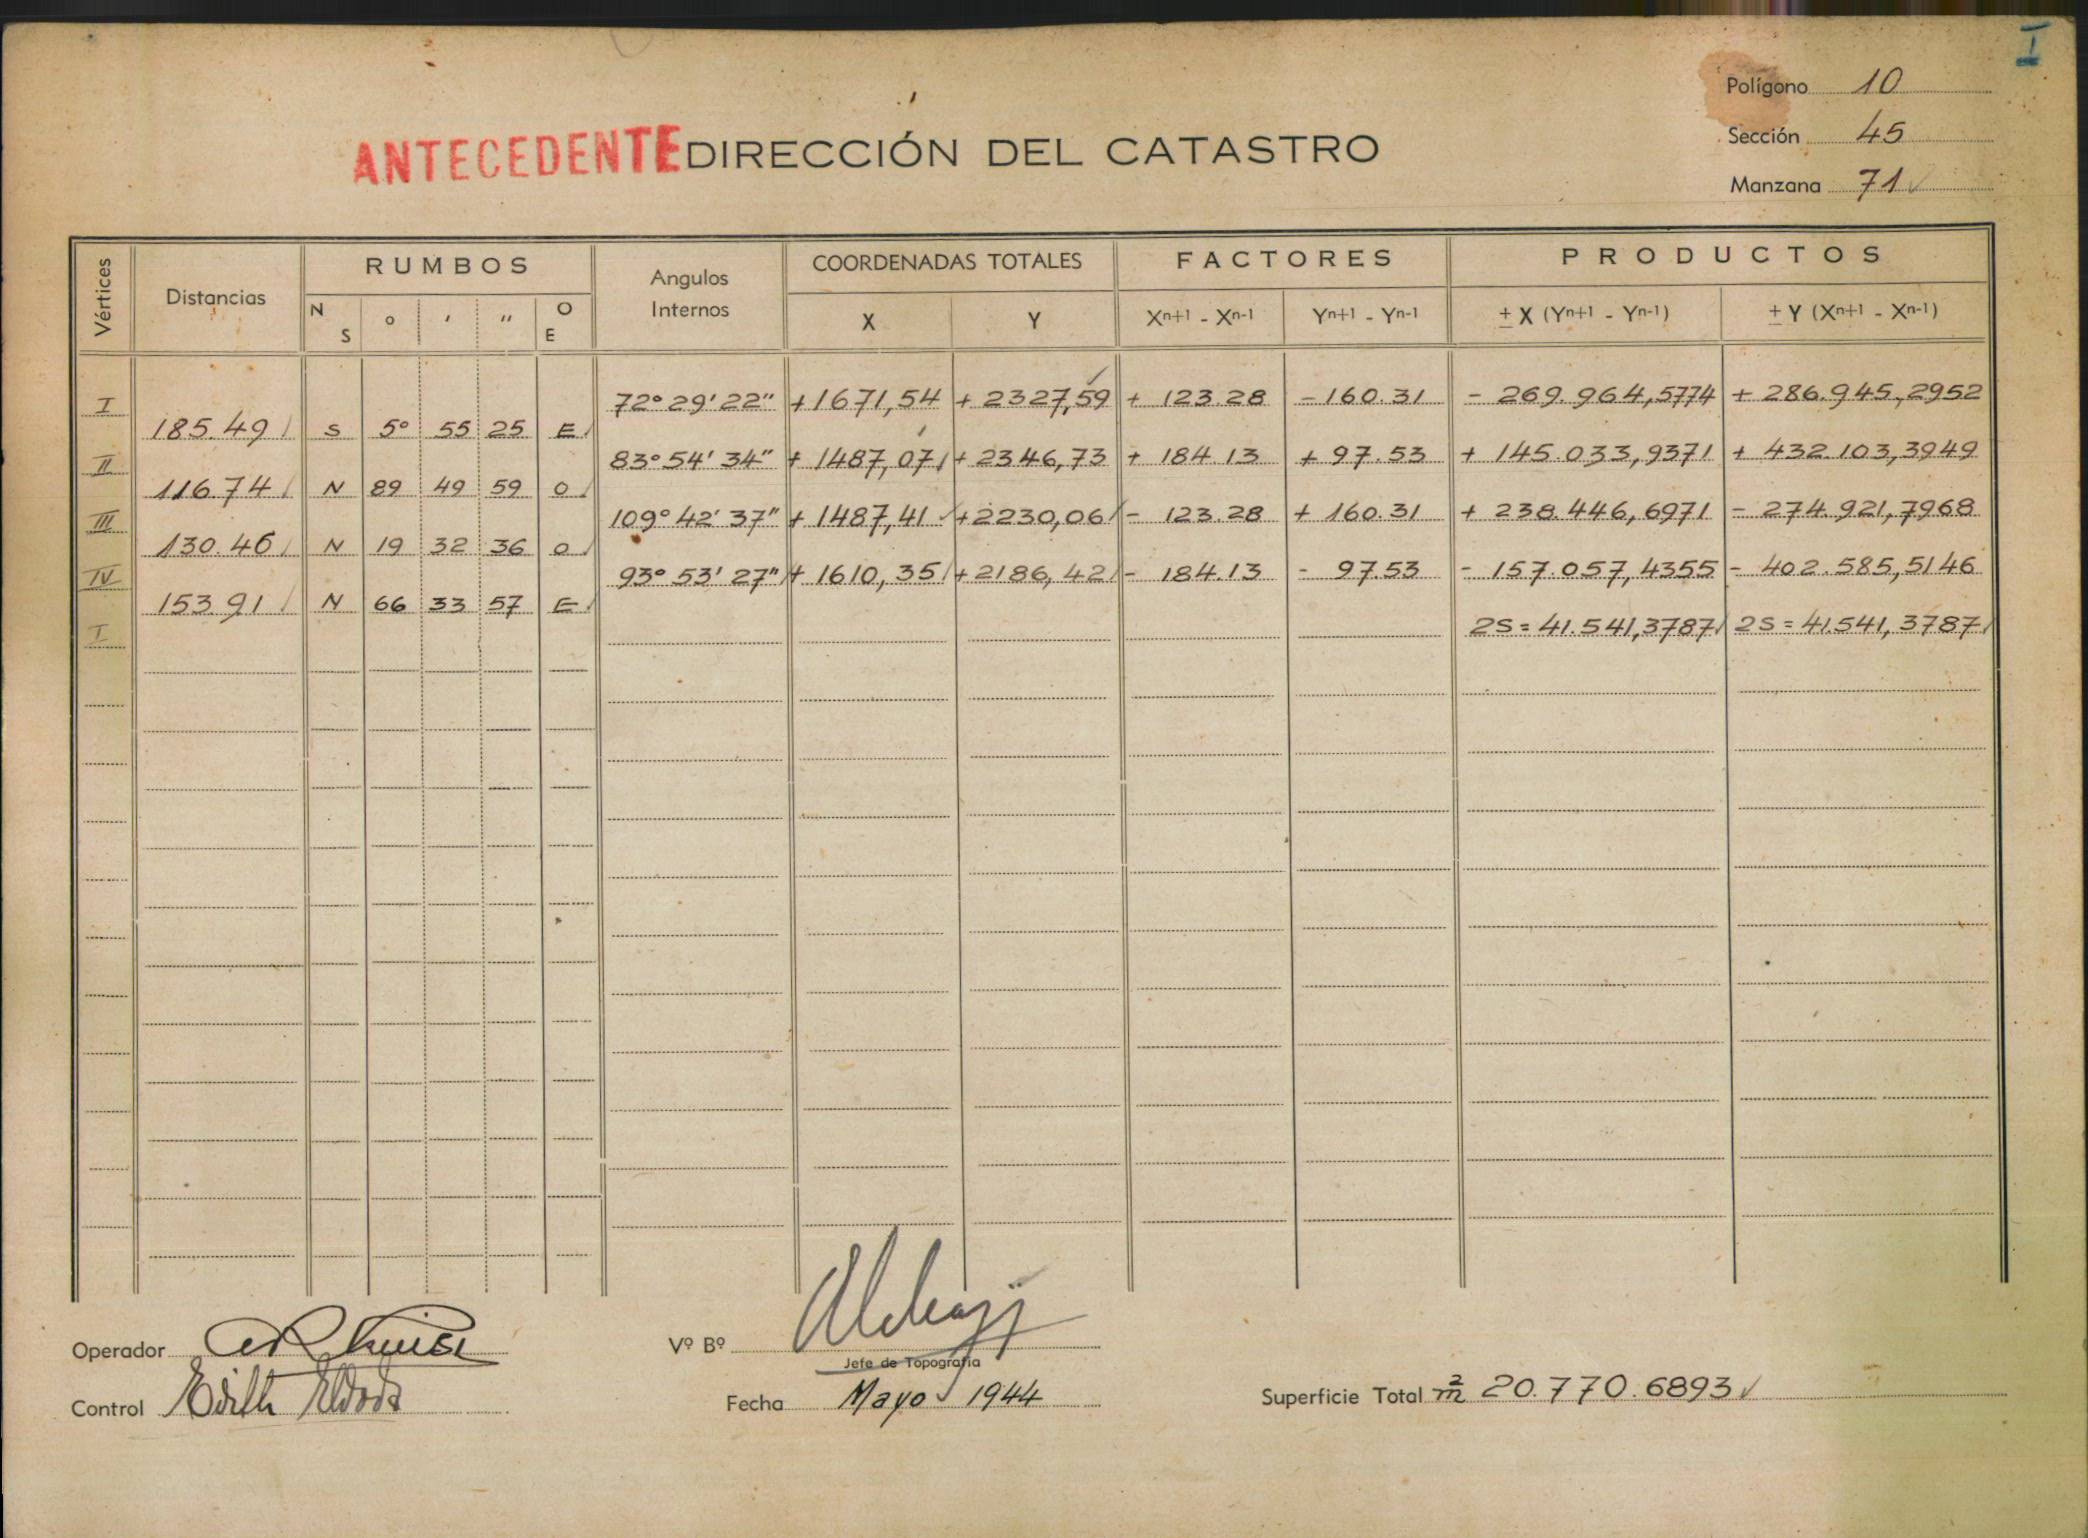 I
Polígono 10
Sección 45
Manzana 71
ANTECEDENTE DIRECCIÓN DEL CATASTRO
Vértices Distancias RUMBOS Angulos Internos COORDENADAS TOTALES FACTORES PRODUCTOS
N S ° ' " O E X Y Xn+1 - Xn-1 Yn+1 - Yn-1 ± X (Yn+1 - Yn-1) ± Y (Xn+1 - Xn-1)
I 72° 29' 22" +1671,54 + 2327,59 + 123.28 - 160.31 - 269.964,5774 + 286.945,2952
185.49 S 5° 55 25 E
II 83° 54' 34" + 1487,07 + 2346,73 + 184.13 + 97.53 + 145.033,9371 + 432.103,3949
116.74 N 89 49 59 O
III 109° 42' 37" + 1487,41 +2230,06 - 123.28 + 160.31 + 238.446,6971 - 274.921,7968
130.46 N 19 32 36 O
IV 93° 53' 27" + 1610,35 +2186,42 - 184.13 - 97.53 - 157.057,4355 - 402.585,5146
153.91 N 66 33 57 E
I 2S = 41.541,3787 2S = 41.541,3787
Operador
Vº Bº
Jefe de Topografía
Control Edith
Fecha Mayo 1944
Superficie Total m² 20.770.6893